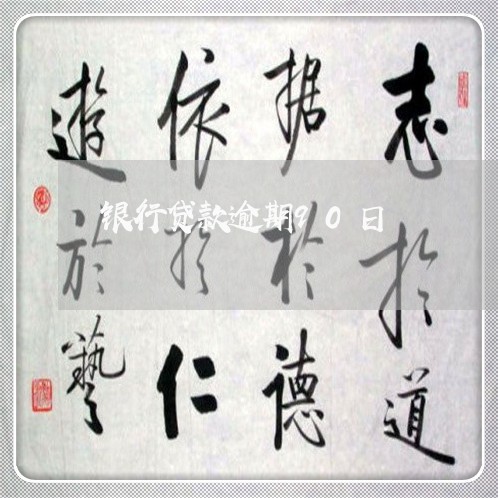 志於道
据於德
依於仁
遊於藝
银行贷款逾期90日